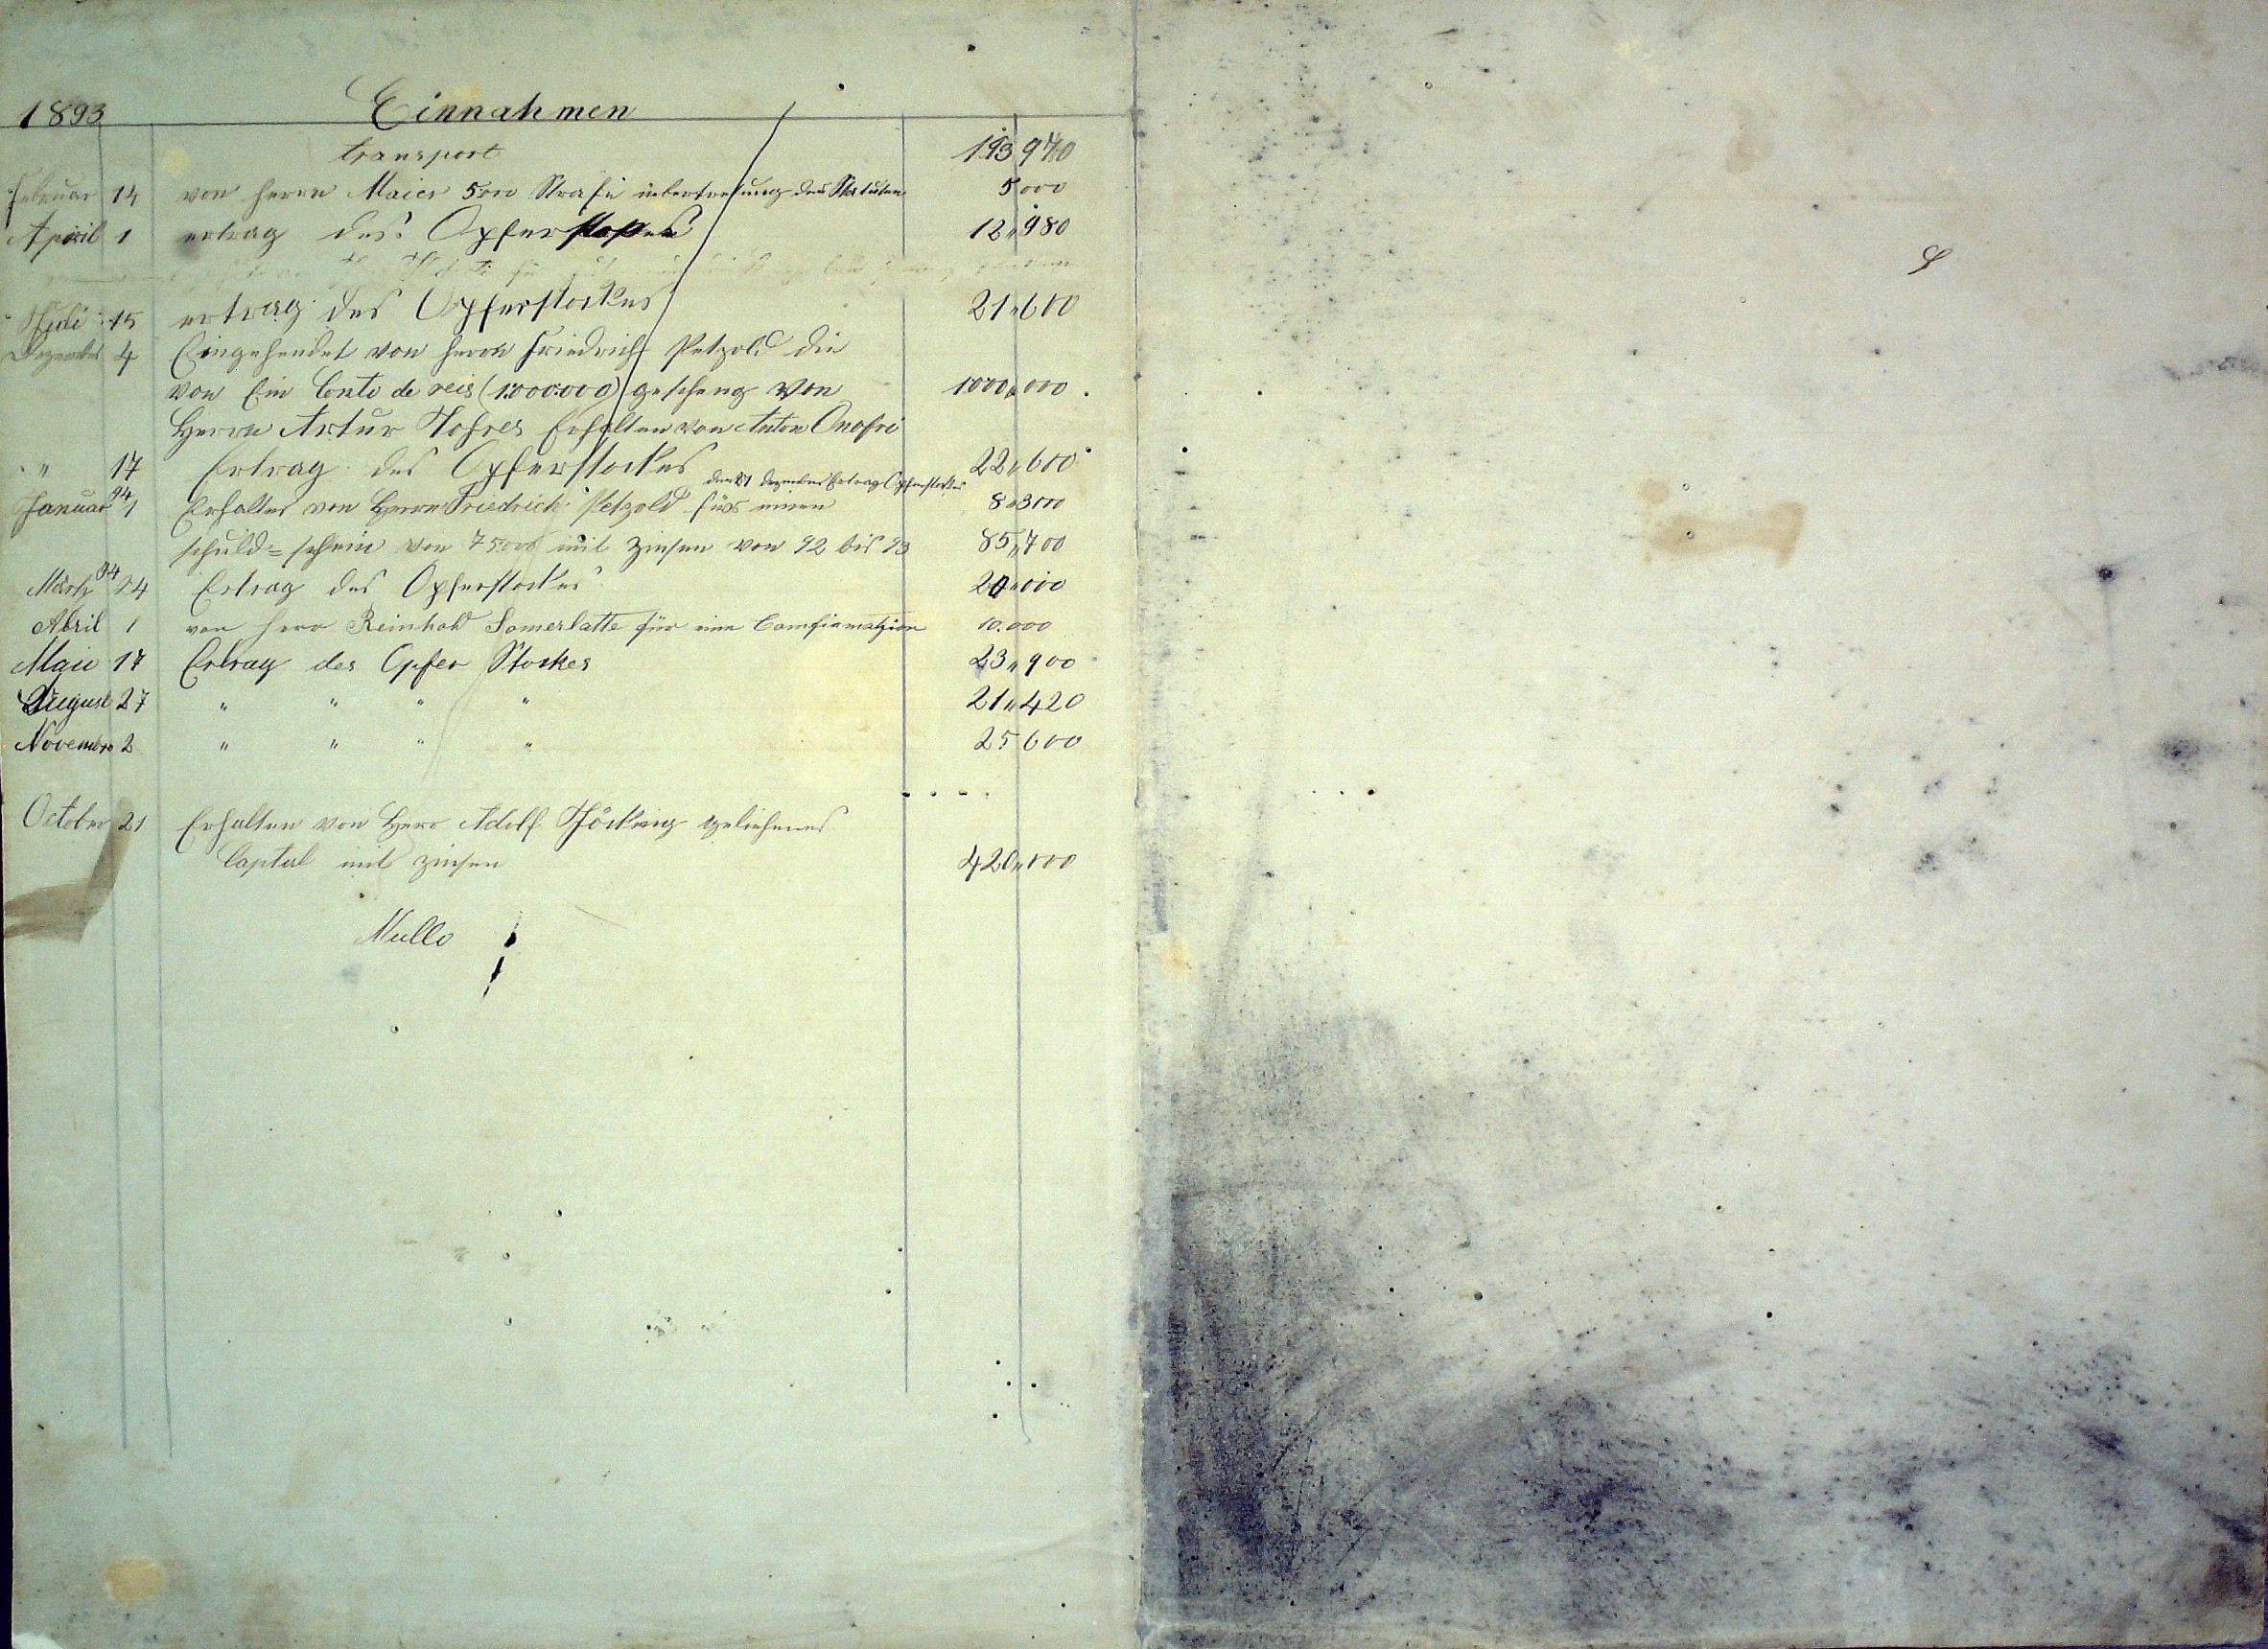 1893 Einnahmen
transport 193 970
Februar 14 von Herrn Maier 5000 Strafe uebertretung des Statuten 5000
April 1 ertrag des Opferstockes 12„980
Juli 15 ertrag des Opferstockes 21„600
Dezember 4 Eingehendet von Herrn Friedrich Petzold die
von Ein Conto de reis (1:000:000) gescheng von 1000„000
Herrn Artur Erhalten von Anton Onofri
" 17 Ertrag des Opferstockes 22„600
den 27 Dezember Ertrag Opferstockes
Januar 94 1 Erhalten von Herrn Friedrich Petzold fürs einen 8„300
schuld= schein von 75000 mit zinsen von 92 bis 93 85„700
März 94 24 Ertrag des Opferstockes 20„000
Abril 1 von Herr Reinhold Somerlatte für eine Comfiamatzion 10.000
Maie 17 Ertrag des Opfer Stockes 23„900
August 27 " " " " 21„420
Novembro 2 " " " " 25 600
October 21 Erhalten von Herr Adolf geliehenes
Captal mit zinsen 420„000
Nullo